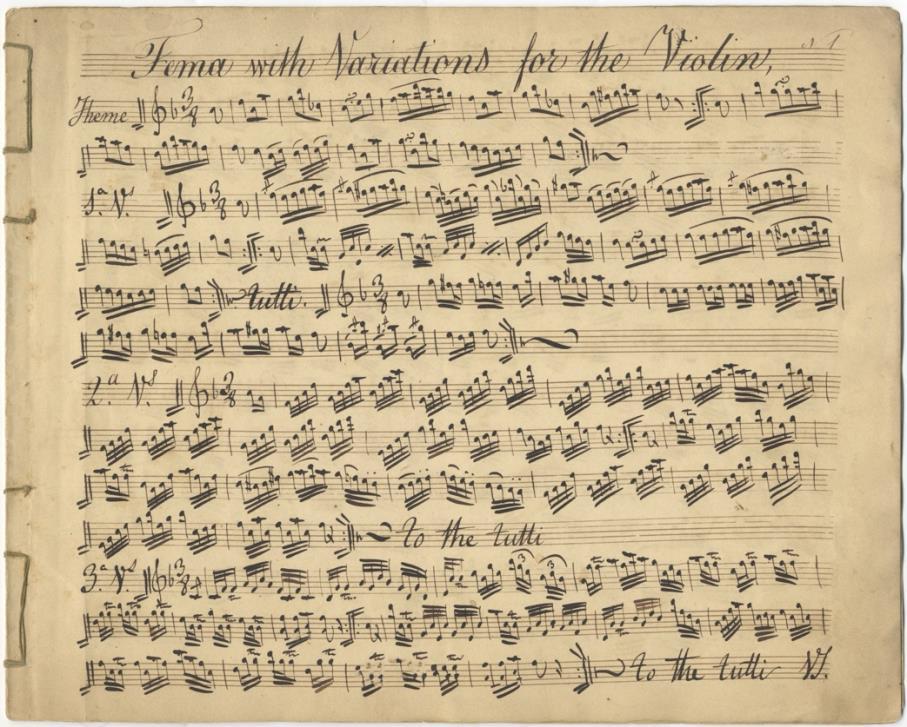 Tema with Variations for the Violin,
Theme 3/8
1.ª V.ˢ 3/8
tutti. 3/8
3 3
2.ª V.ˢ 3/8
to the tutti
3.ª V.ˢ 3/8
3 3
to the tutti VS.